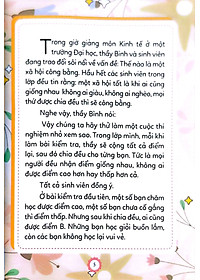 Trong giờ giảng môn Kinh tế ở một
trường Đại học, thầy Bình và sinh viên
đang trao đổi sôi nổi về vấn đề: Thế nào là một
xã hội công bằng. Hầu hết các sinh viên trong
lớp đều tin rằng: một xã hội tốt là khi ai cũng
giống nhau không ai giàu, không ai nghèo, mọi
thứ được chia đều thì sẽ công bằng.
Nghe vậy, thầy Bình nói:
Vậy chúng ta hãy thử làm một cuộc thí
nghiệm nhỏ xem sao. Trong lớp mình, mỗi khi
làm bài kiểm tra, thầy sẽ cộng tất cả điểm
lại, sau đó chia đều cho từng bạn. Tức là mọi
người đều nhận điểm giống nhau, không ai
được điểm cao hơn hay thấp hơn cả.
Tất cả sinh viên đồng ý.
Ở bài kiểm tra đầu tiên, một số bạn chăm
học được điểm cao, một số bạn chưa cố gắng
thì điểm thấp. Nhưng sau khi chia đều, ai cũng
được điểm B. Những bạn học giỏi buồn lắm,
còn các bạn không học lại vui vẻ.
5